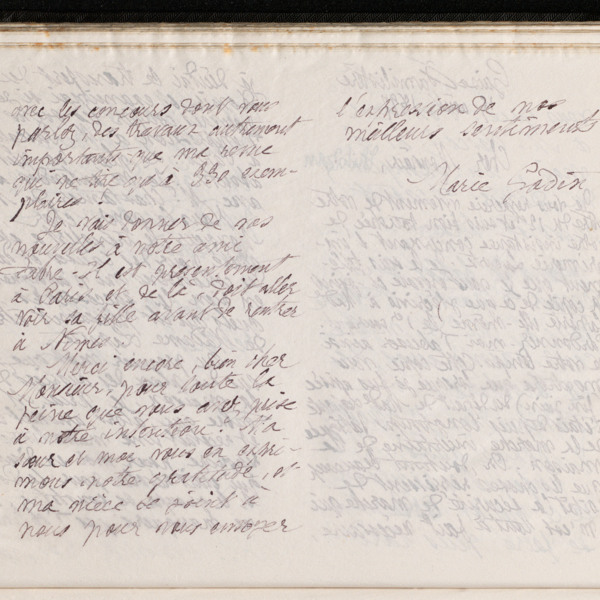 avec les concours dont vous
parlez, des travaux autrement
importants que ma revue
qui ne tire qu'à 330 exem-
plaires !
Je vais donner de vos
nouvelles à notre ami
Fabre. Il est
à Paris et de là, doit aller
voir sa fille avant de rentrer
à Nîmes.
Merci encore, bien cher
Monsieur, pour toute la
peine que vous avez prise
à notre intention. Ma
sœur et moi vous en expri-
mons notre gratitude, et
ma nièce se joint à
nous pour vous envoyer
l'expression de nos
meilleurs sentiments
Marie Godin